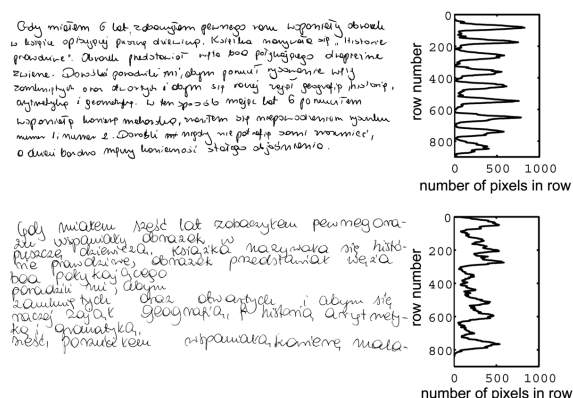 Gdy miałem 6 lat, zobaczyłem pewnego razu wspaniały obrazek
w książce opisującej puszczę dziewiczą. Książka nazywała się „Historie
prawdziwe”. Obrazek przedstawiał węża boa połykającego drapieżne
zwierzę. Dorośli poradzili mi, abym porzucił rysowanie węży
zamkniętych oraz otwartych i abym się raczej zajął geografią, historią,
arytmetyką i geometrią. W ten sposób mając lat 6 porzuciłem
wspaniałą karierę malarską, zraziłem się niepowodzeniem rysunku
numer 1 i numer 2. Dorośli nigdy nie potrafią sami zrozumieć,
a dzieci bardzo męczy konieczność stałego objaśniania.
0
200
400
600
800
row number
0 500 1000
number of pixels in row
Gdy miałem sześć lat zobaczyłem pewnego ra-
zu wspaniały obrazek w
puszczę dziewiczą. Książka nazywała się histo-
rie prawdziwe, obrazek przedstawiał węża
boa połykającego
poradzili mi, abym
zamkniętych oraz otwartych i abym się
raczej zajął geografią, historią arytmety-
ką i gramatyką.
sześć porzuciłem wspaniałą karierę mala-
0
200
400
600
800
row number
0 500 1000
number of pixels in row